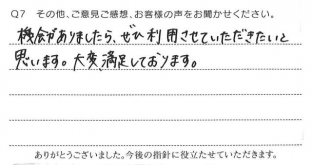 Q7 その他、ご意見ご感想、お客様の声をお聞かせください。
機会がありましたら、ぜひ利用させていただきたいと
思います。大変満足しております。
ありがとうございました。今後の指針に役立たせていただきます。